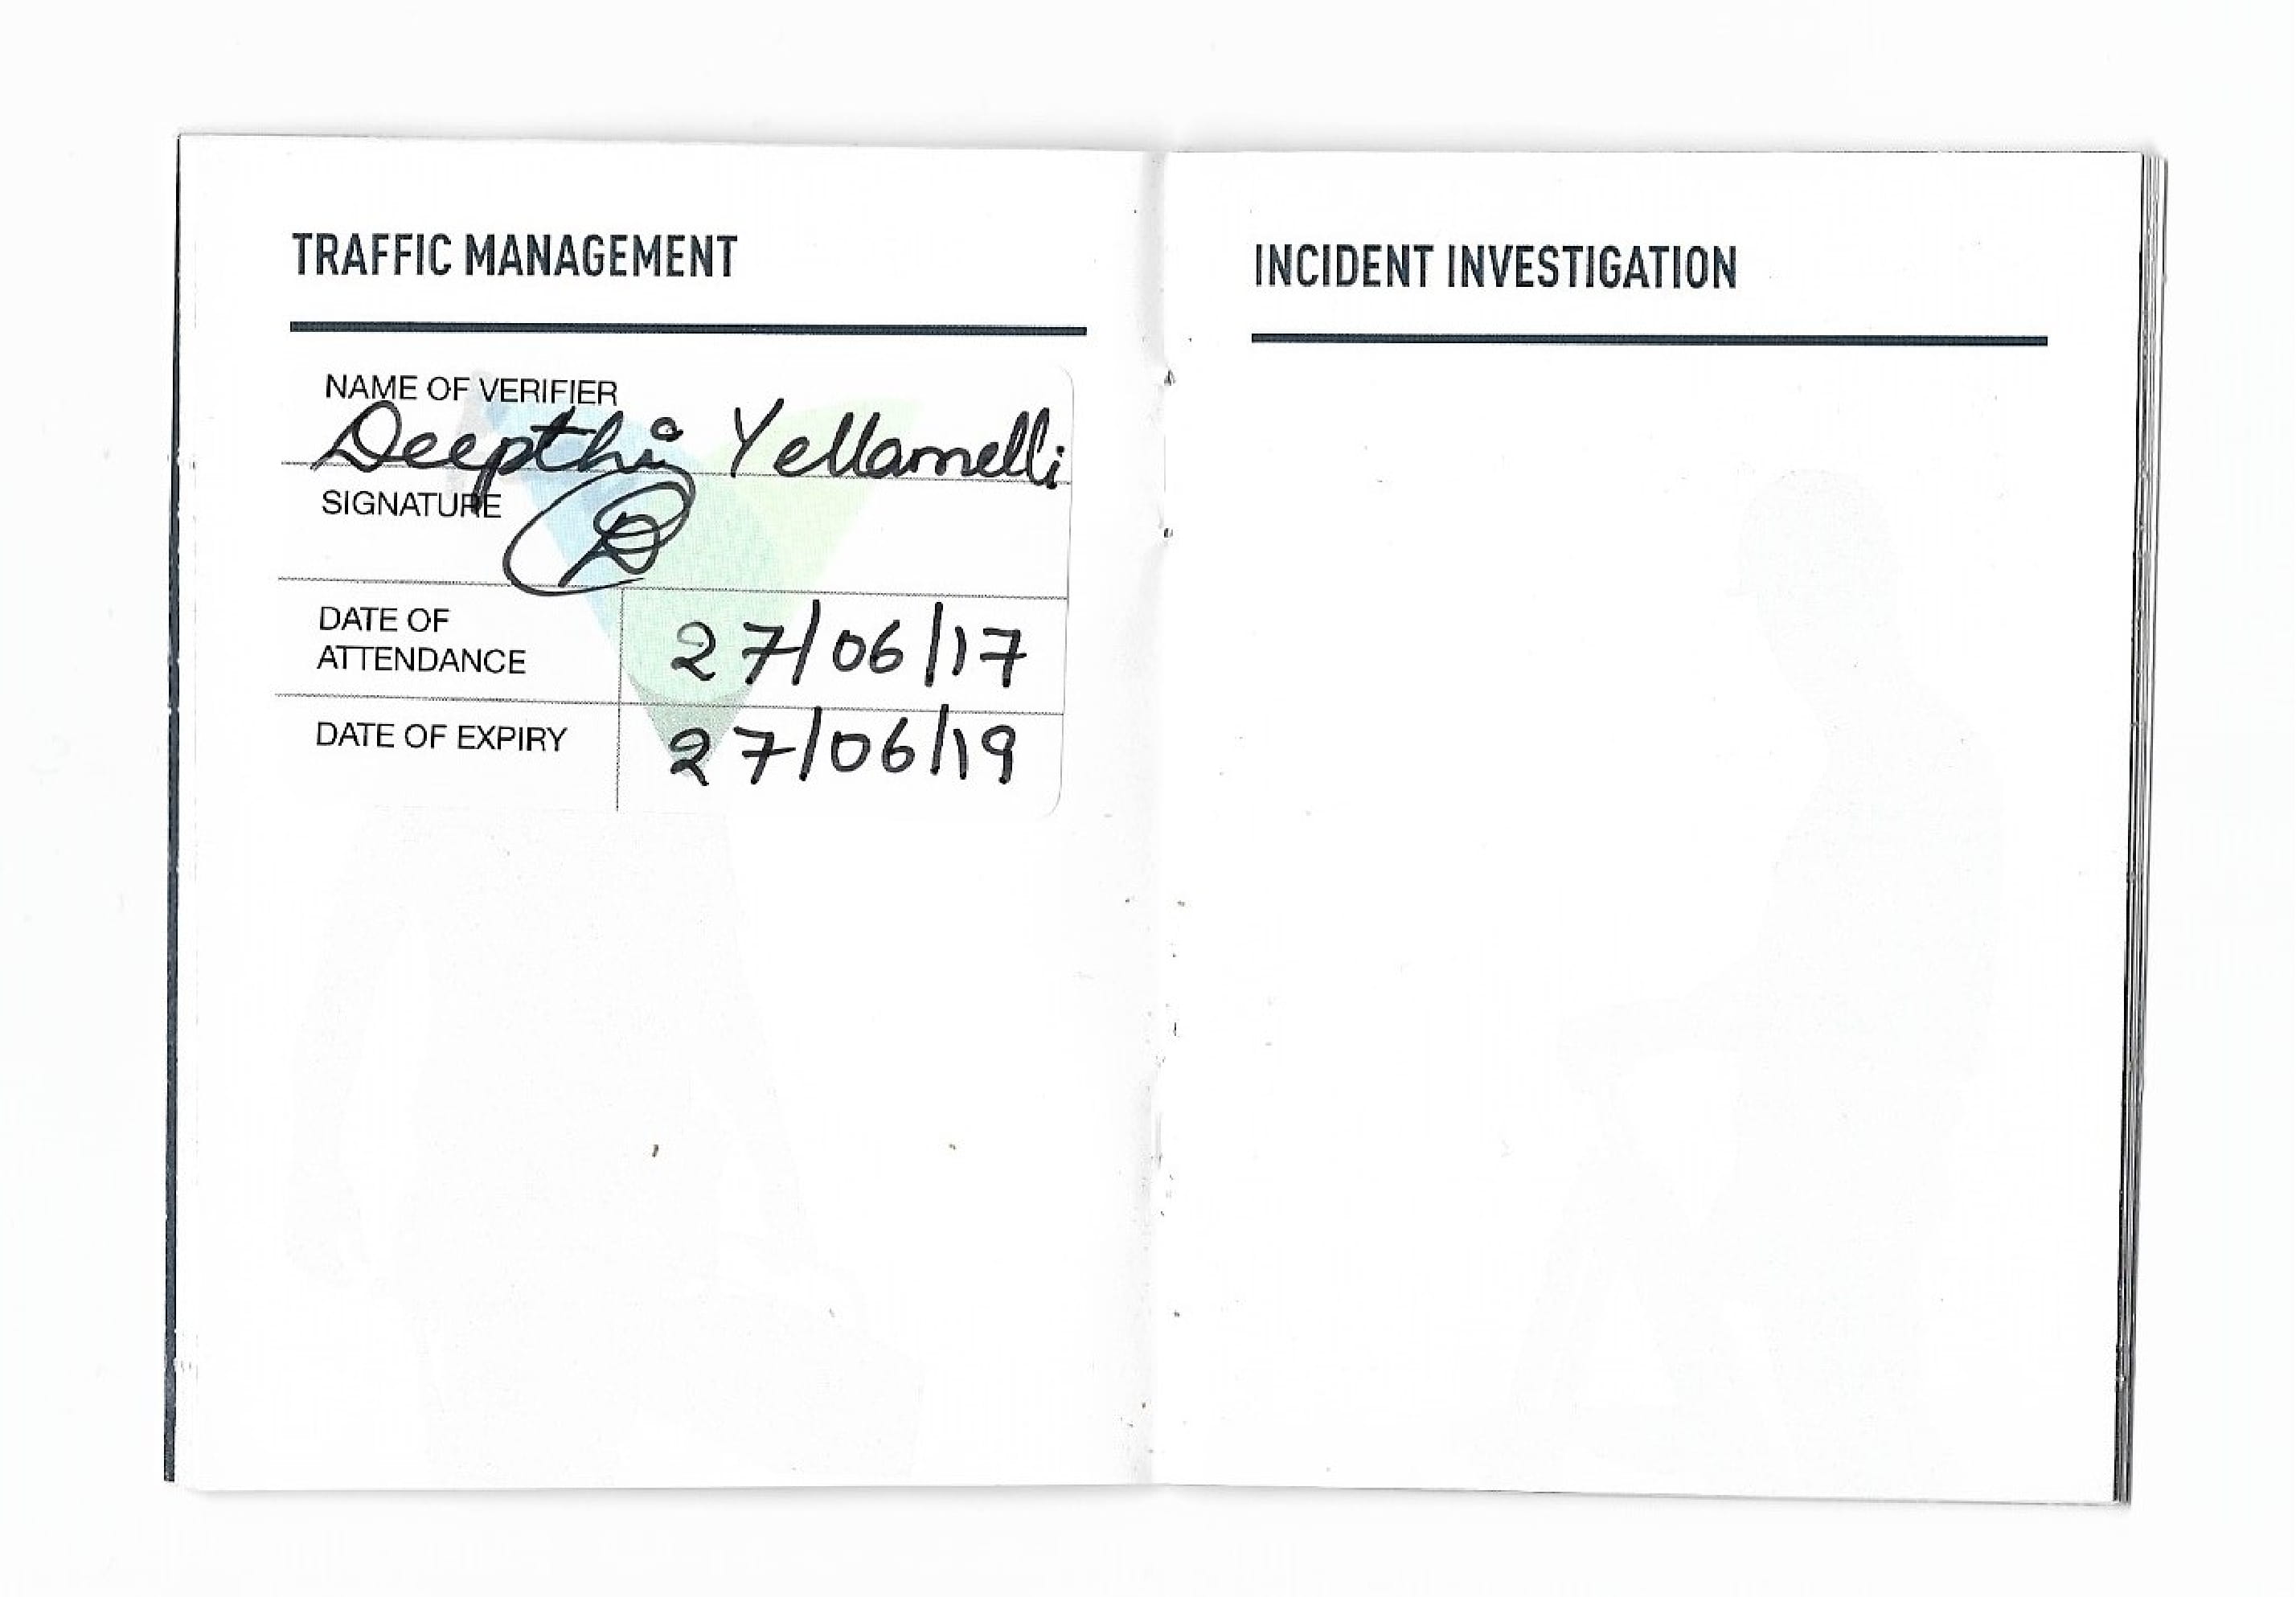 TRAFFIC MANAGEMENT
NAME OF VERIFIER
Deepthi Yellamelli
SIGNATURE
DATE OF
ATTENDANCE
27/06/17
DATE OF EXPIRY
27/06/19
INCIDENT INVESTIGATION